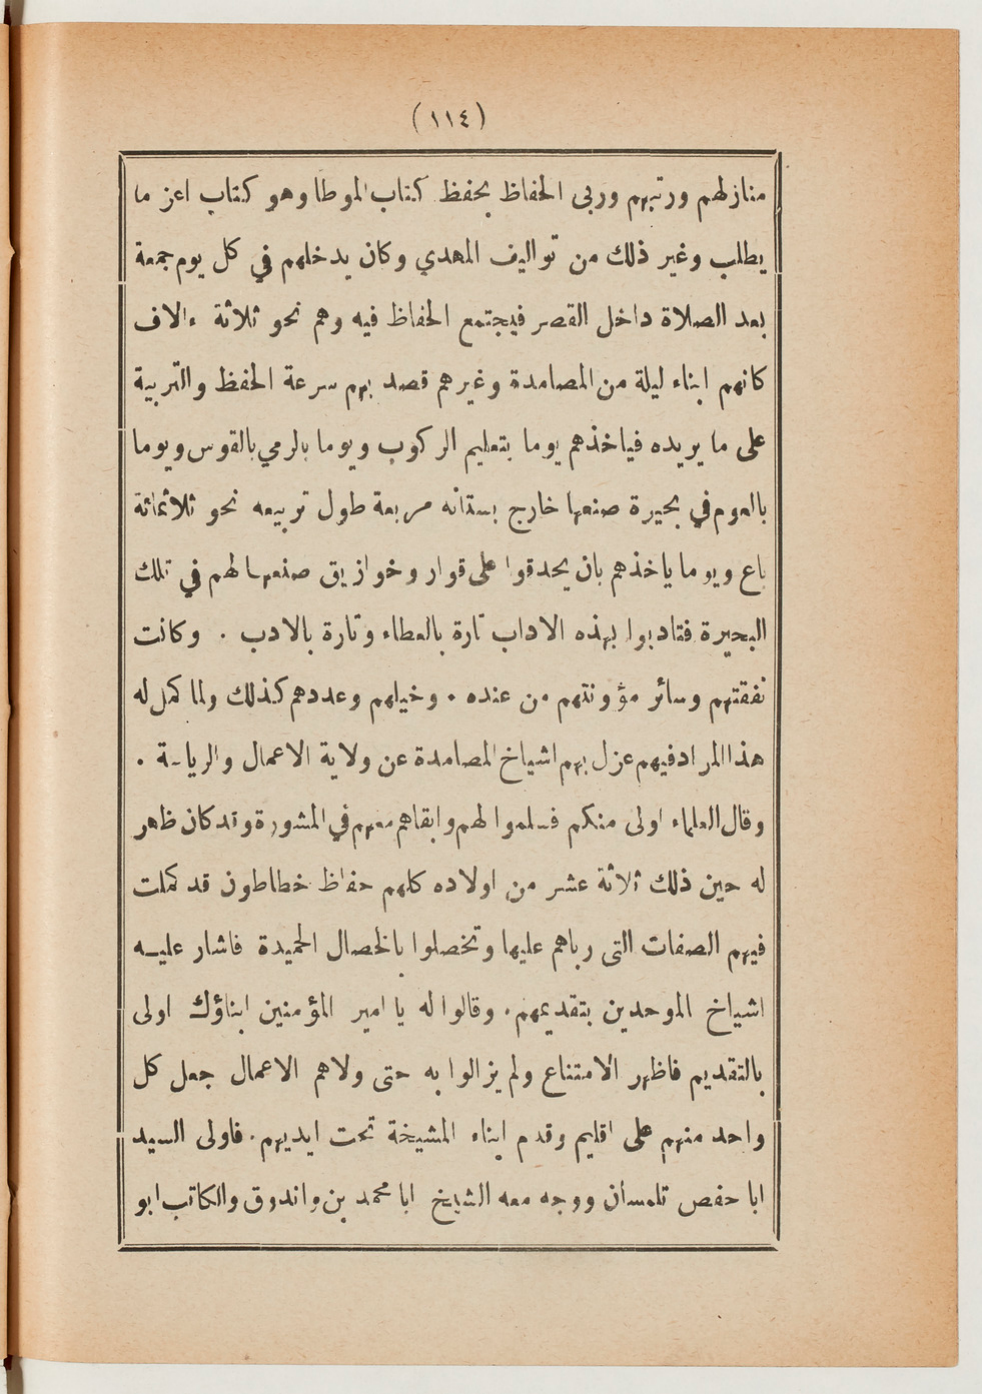 (١١٤)
منازلهم ورتبهم وربى الحفاظ بحفظ كتاب الموطا وهو كتاب اعز ما
يطلب وغير ذلك من تواليف المهدي وكان يدخلهم في كل يوم جمعة
بعد الصلاة داخل القصر فيجتمع الحفاظ فيه وهم نحو ثلاثة ءالاف
كانهم ابناء ليلة من المصامدة وغيرهم قصد بهم سرعة الحفظ والتربية
على ما يريده فياخذهم يوما بتعليم الركوب ويوما بالرمي بالقوس ويوما
بالعوم في بحيرة صنعها خارج بستانه مربعة طول تربيعه نحو ثلاثمائة
باع ويوما ياخذهم بان يحدقوا على قوار وخوازيق صنعها لهم في تلك
البحيرة فتادبوا بهذه الاداب تارة بالعطاء وتارة بالادب . وكانت
نفقتهم وسائر مؤونتهم من عنده . وخيلهم وعددهم كذلك ولما كمل له
هذا المراد فيهم عزل بهم اشياخ المصامدة عن ولاية الاعمال والرياسة .
وقال العلماء اولى منكم فسلموا لهم وابقاهم معهم في المشورة وقد كان ظهر
له حين ذلك ثلاثة عشر من اولاده كلهم حفاظ خطاطون قد كملت
فيهم الصفات التى رباهم عليها وتخصلوا بالخصال الحميدة فاشار عليه
اشياخ الموحدين بتقديمهم . وقالوا له يا امير المؤمنين ابناؤك اولى
بالتقديم فاظهر الامتناع ولم يزالوا به حتى ولاهم الاعمال جعل كل
واحد منهم على اقليم وقدم ابناء المشيخة تحت ايديهم . فاولى السيد
ابا حفص تلمسان ووجه معه الشيخ ابا محمد بن واندوق والكاتب ابو